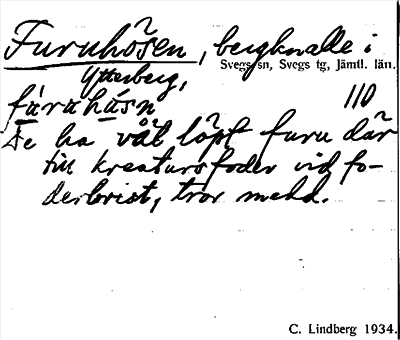 Furuhösen, bergknalle i
Svegs sn, Svegs tg, Jämtl. län.
Ytterberg,
furuhusn 110
De ha väl löpt furu där
till kreatursfoder vid fo-
derbrist, tror medd.
C. Lindberg 1934.